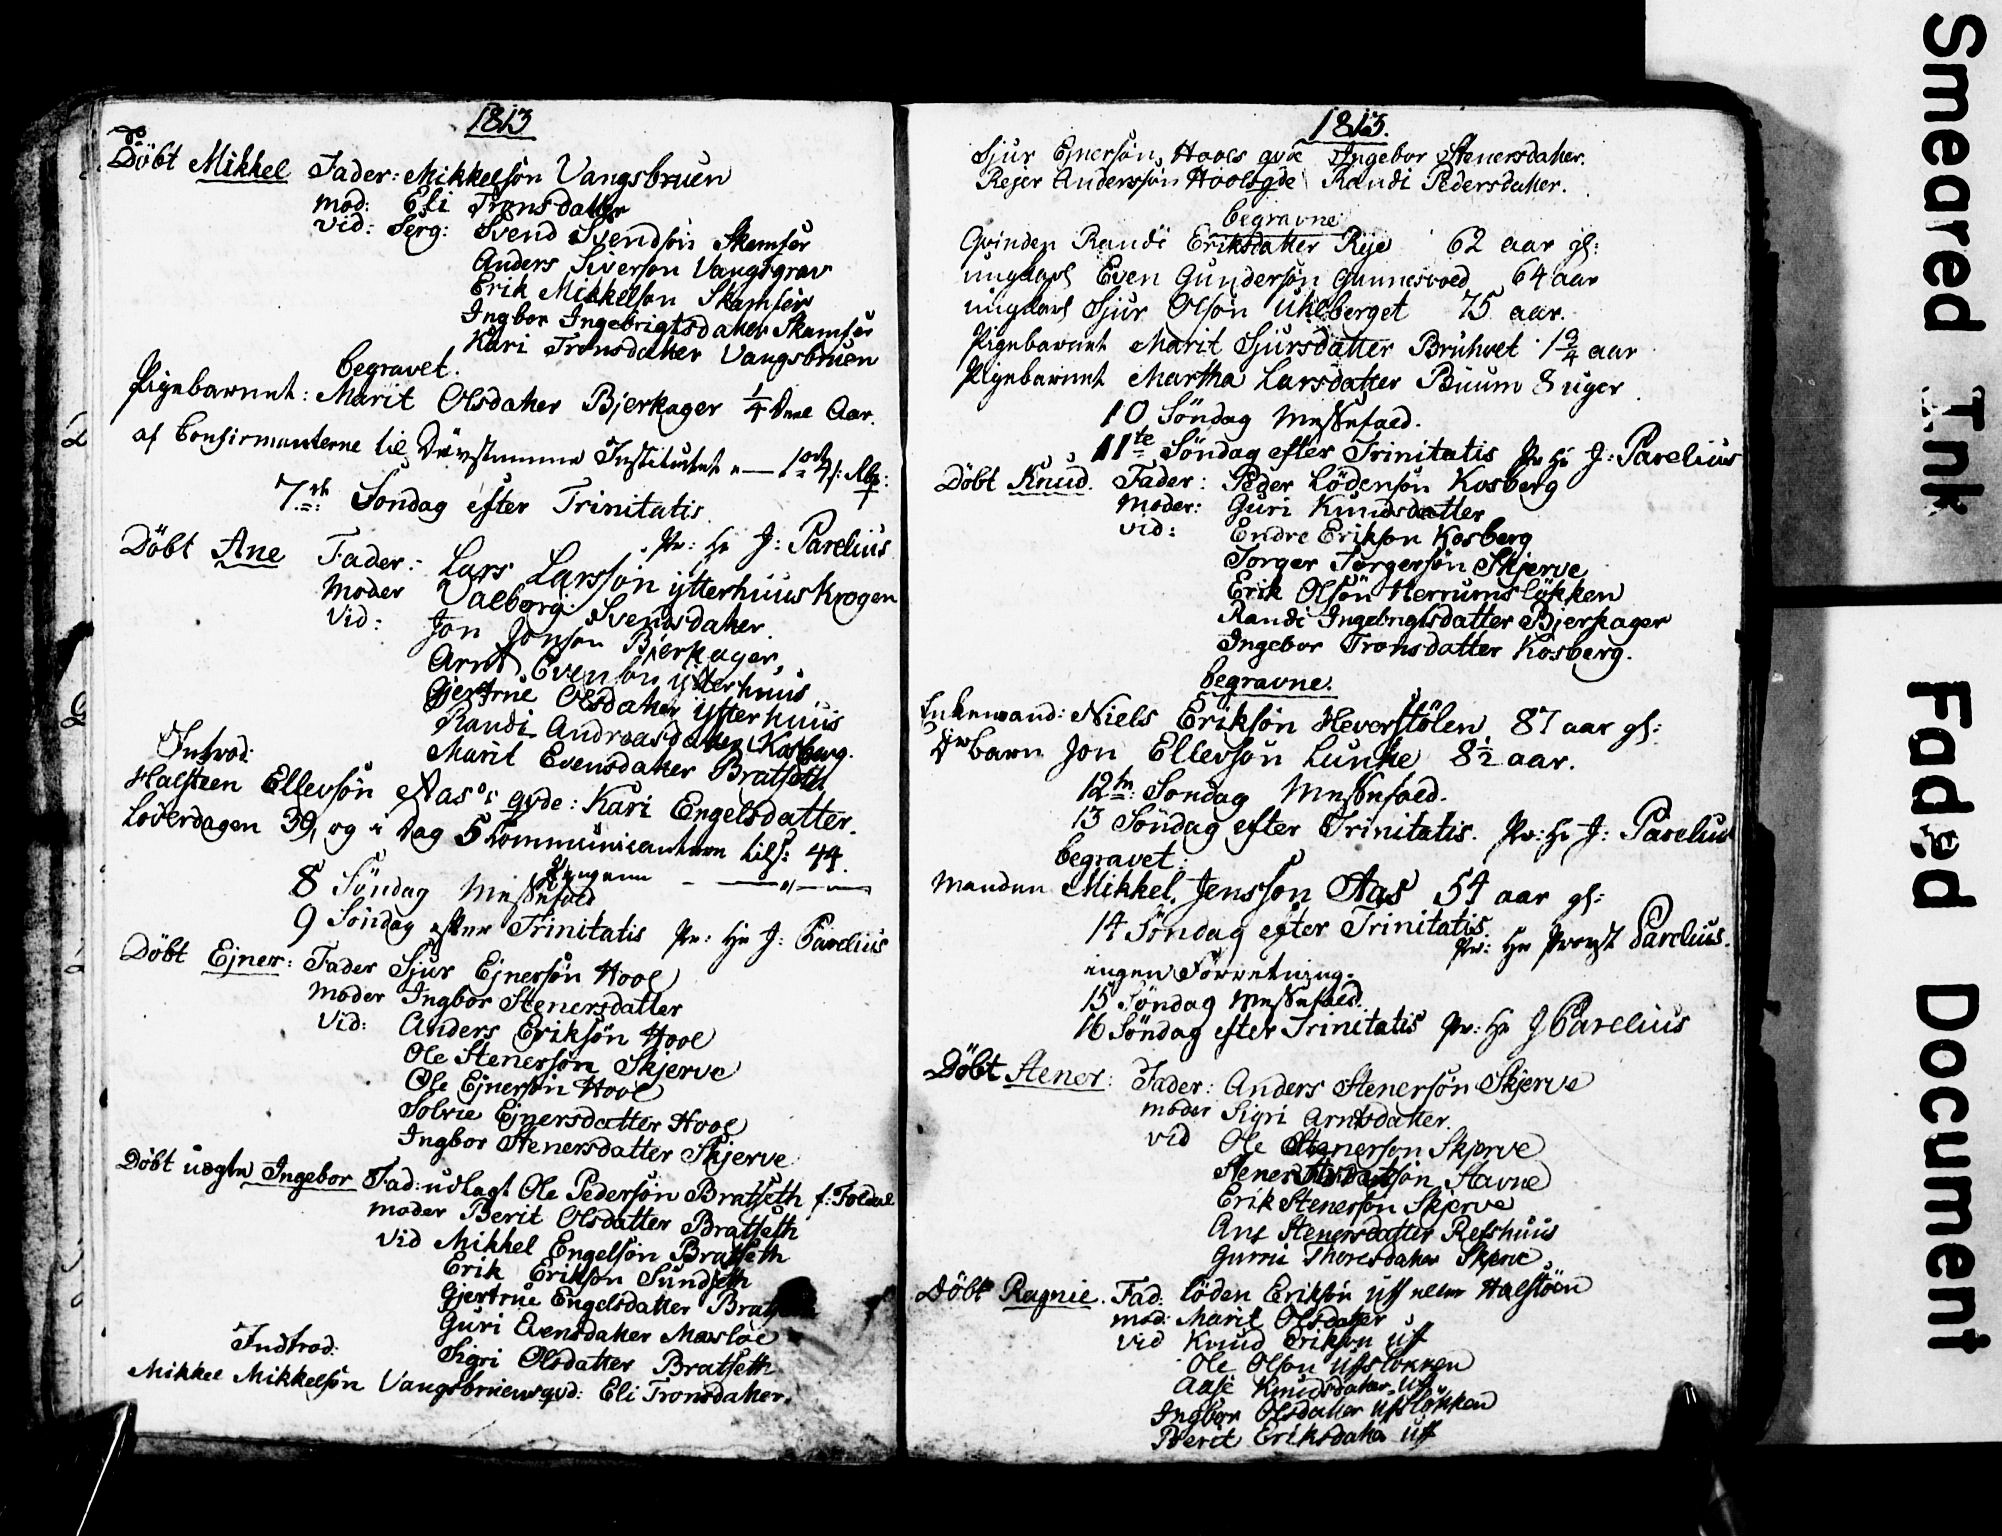 1813
Döbt Mikkel Fader: Mikkelsön Vangsbruen
mod: Eli Tronsdatter
vid: Serg: Svend Svendsön Skamfer
Anders Siverson Vangsgrav
Erik Mikkelson Skamfer
Ingbor Ingebrigtsdatter Skamfer
Kari Tronsdatter Vangsbruen
begravet.
Pigebarnet: Marit Olsdatter Bjerkager 1/4 Deel Aar.
af Confirmanterne til Døvstumme Institutet
7de Söndag efter Trinitatis
Pr: Hr J: Parelius
Döbt Ane Fader: Lars Larssön ytterhuus Krogen
Moder Valborg Svendsdatter.
Vid: Jon Jonson Bjerkager,
Arnt Evensön ytterhuus
Gjertrue Olsdatter ytterhuus
Randi Andreasdatter Kosberg.
Marit Evensdatter Bratseth
Introd:
Halsteen Ellevsön Aas's qvde: Kari Engelsdatter.
Löverdagen 39, og i Dag 5 Communicantere tils: 44.
8 Söndag Messefald
9 Söndag efter Trinitatis Pr: Hr J: Parelius
Döbt Ejner: Fader Sjur Ejnersön Hoel
Moder Ingbor Stenersdatter
Vid: Anders Eriksön Hoel
Ole Stenersön Skjerve
Ole Ejnersön Hoel
Solvie Ejnersdatter Hoel
Ingbor Stenersdatter Skjerve
Döbt uægte Ingebor Fad: udlagt Ole Pedersön Bratseth f: Foldal
moder Berit Olsdatter Bratseth
vid Mikkel Engelsön Bratseth
Erik Erikson Sundseth
Gjertrue Engelsdatter Bratseth
Guri Evensdatter Masloe
Sigri Olsdatter Bratseth
Indtrod:
Mikkel Mikkelsön Vangsbruens qvd: Eli Tronsdatter.
1813.
Sjur Ejnersön Hoels qvde Ingebor Stenersdatter.
Rejer Anderssön Hoels qde Randi Pedersdatter.
begravne:
Qvinden Randi Eriksdatter Rye 62 aar gl:
ungkarl Even Gundersön Gunnesvoed 64 aar
ungkarl Sjur Olsön Uhlberget 75 aar.
Pigebarnet Marit Sjursdatter Bruhvet 1 3/4 aar
Pigebarnet Martha Larsdatter Buum 8 uger
10 Söndag Messefald.
11te Söndag efter Trinitatis Pr Hr J: Parelius
Döbt Knud. Fader: Peder Lödensön Kosberg
Moder: Guri Knudsdatter
vid: Endre Erikson Kosberg
Torger Torgersön Skjerve
Erik Olsön Herrumslökken
Randi Ingebrigtsdatter Bjerkager
Ingebor Tronsdatter Kosberg.
begravne.
Enkemand: Niels Eriksön Heverstölen 87 aar gl:
Drbarn Jon Ellevsön Lunke 8 1/2 aar.
12te: Söndag Messefald.
13 Söndag efter Trinitatis. Pr: Hr J: Parelius
begravet:
Manden Mikkel Jensson Aas 54 aar gl:
14 Söndag efter Trinitatis
Pr: Hr Provst Parelius.
ingen Forretning.
15 Söndag Messefald.
16 Söndag efter Trinitatis Pr: Hr J Parelius
Döbt Stener: Fader: Anders Stenersön Skjerve
moder Sigri Arntsdatter.
vid Ole Stenerson Skjerve
Stener Stavne
Erik Stenersön Skjerve
Ane Stenersdatter Refshuus
Gurrü Thoresdatter Skjerve
Döbt Ragnie. Fad: Löden Eriksön Uff eller Halstöen
mod: Marit Olsdatter
vid Knud Erikson Uff
Ole Olson Ufslökken
Aase Knudsdatter Uff
Ingbor Olsdatter Ufslökken
Berit Eriksdatter Uff
Smeared Ink
Faded Document